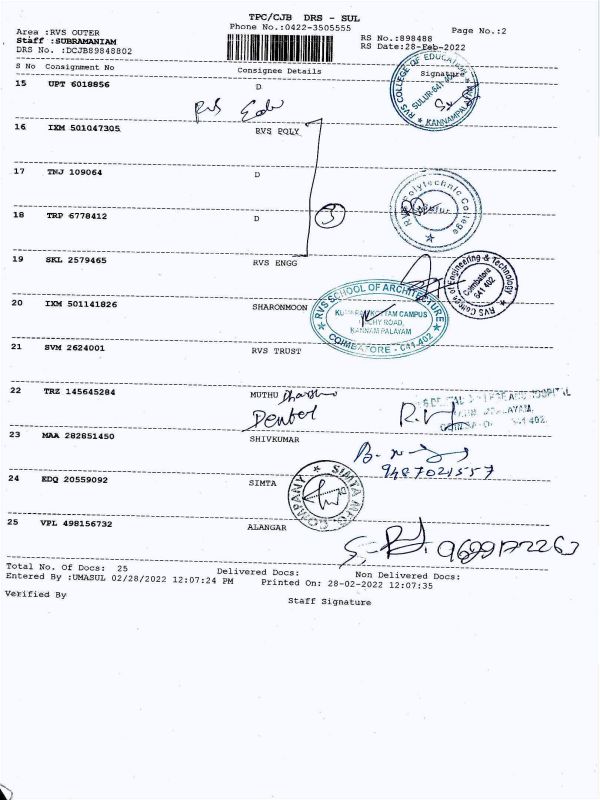 TPC/CJB DRS - SUL
Phone No.:0422-3505555
Area :RVS OUTER
Staff :SUBRAMANIAM
DRS No. :DCJB89848802
RS No.:898488
RS Date:28-Feb-2022
Page No.:2
S No Consignment No Consignee Details Signature
15 UPT 6018856 D
RVS COLLEGE OF EDUCATION
SULUR-641 402
KANNAMPALAYAM
16 IXM 501047305 RVS POLY
17 TNJ 109064 D
3
Polytechnic College
18 TRP 6778412 D
19 SKL 2579465 RVS ENGG
RVS College of Engineering & Technology
Coimbatore
641 402
20 IXM 501141826 SHARONMOON
RVS SCHOOL OF ARCHITECTURE
KUMARAN KOTTAM CAMPUS
TRICHY ROAD,
KANNAM PALAYAM
COIMBATORE - 641 402
21 SVM 2624001 RVS TRUST
22 TRZ 145645284 MUTHU
Dental
23 MAA 282851450 SHIVKUMAR
9487021557
24 EDQ 20559092 SIMTA
SIMTA MFG COMPANY
25 VPL 498156732 ALANGAR
Total No. Of Docs: 25 Delivered Docs: Non Delivered Docs:
Entered By :UMASUL 02/28/2022 12:07:24 PM Printed On: 28-02-2022 12:07:35
Verified By Staff Signature